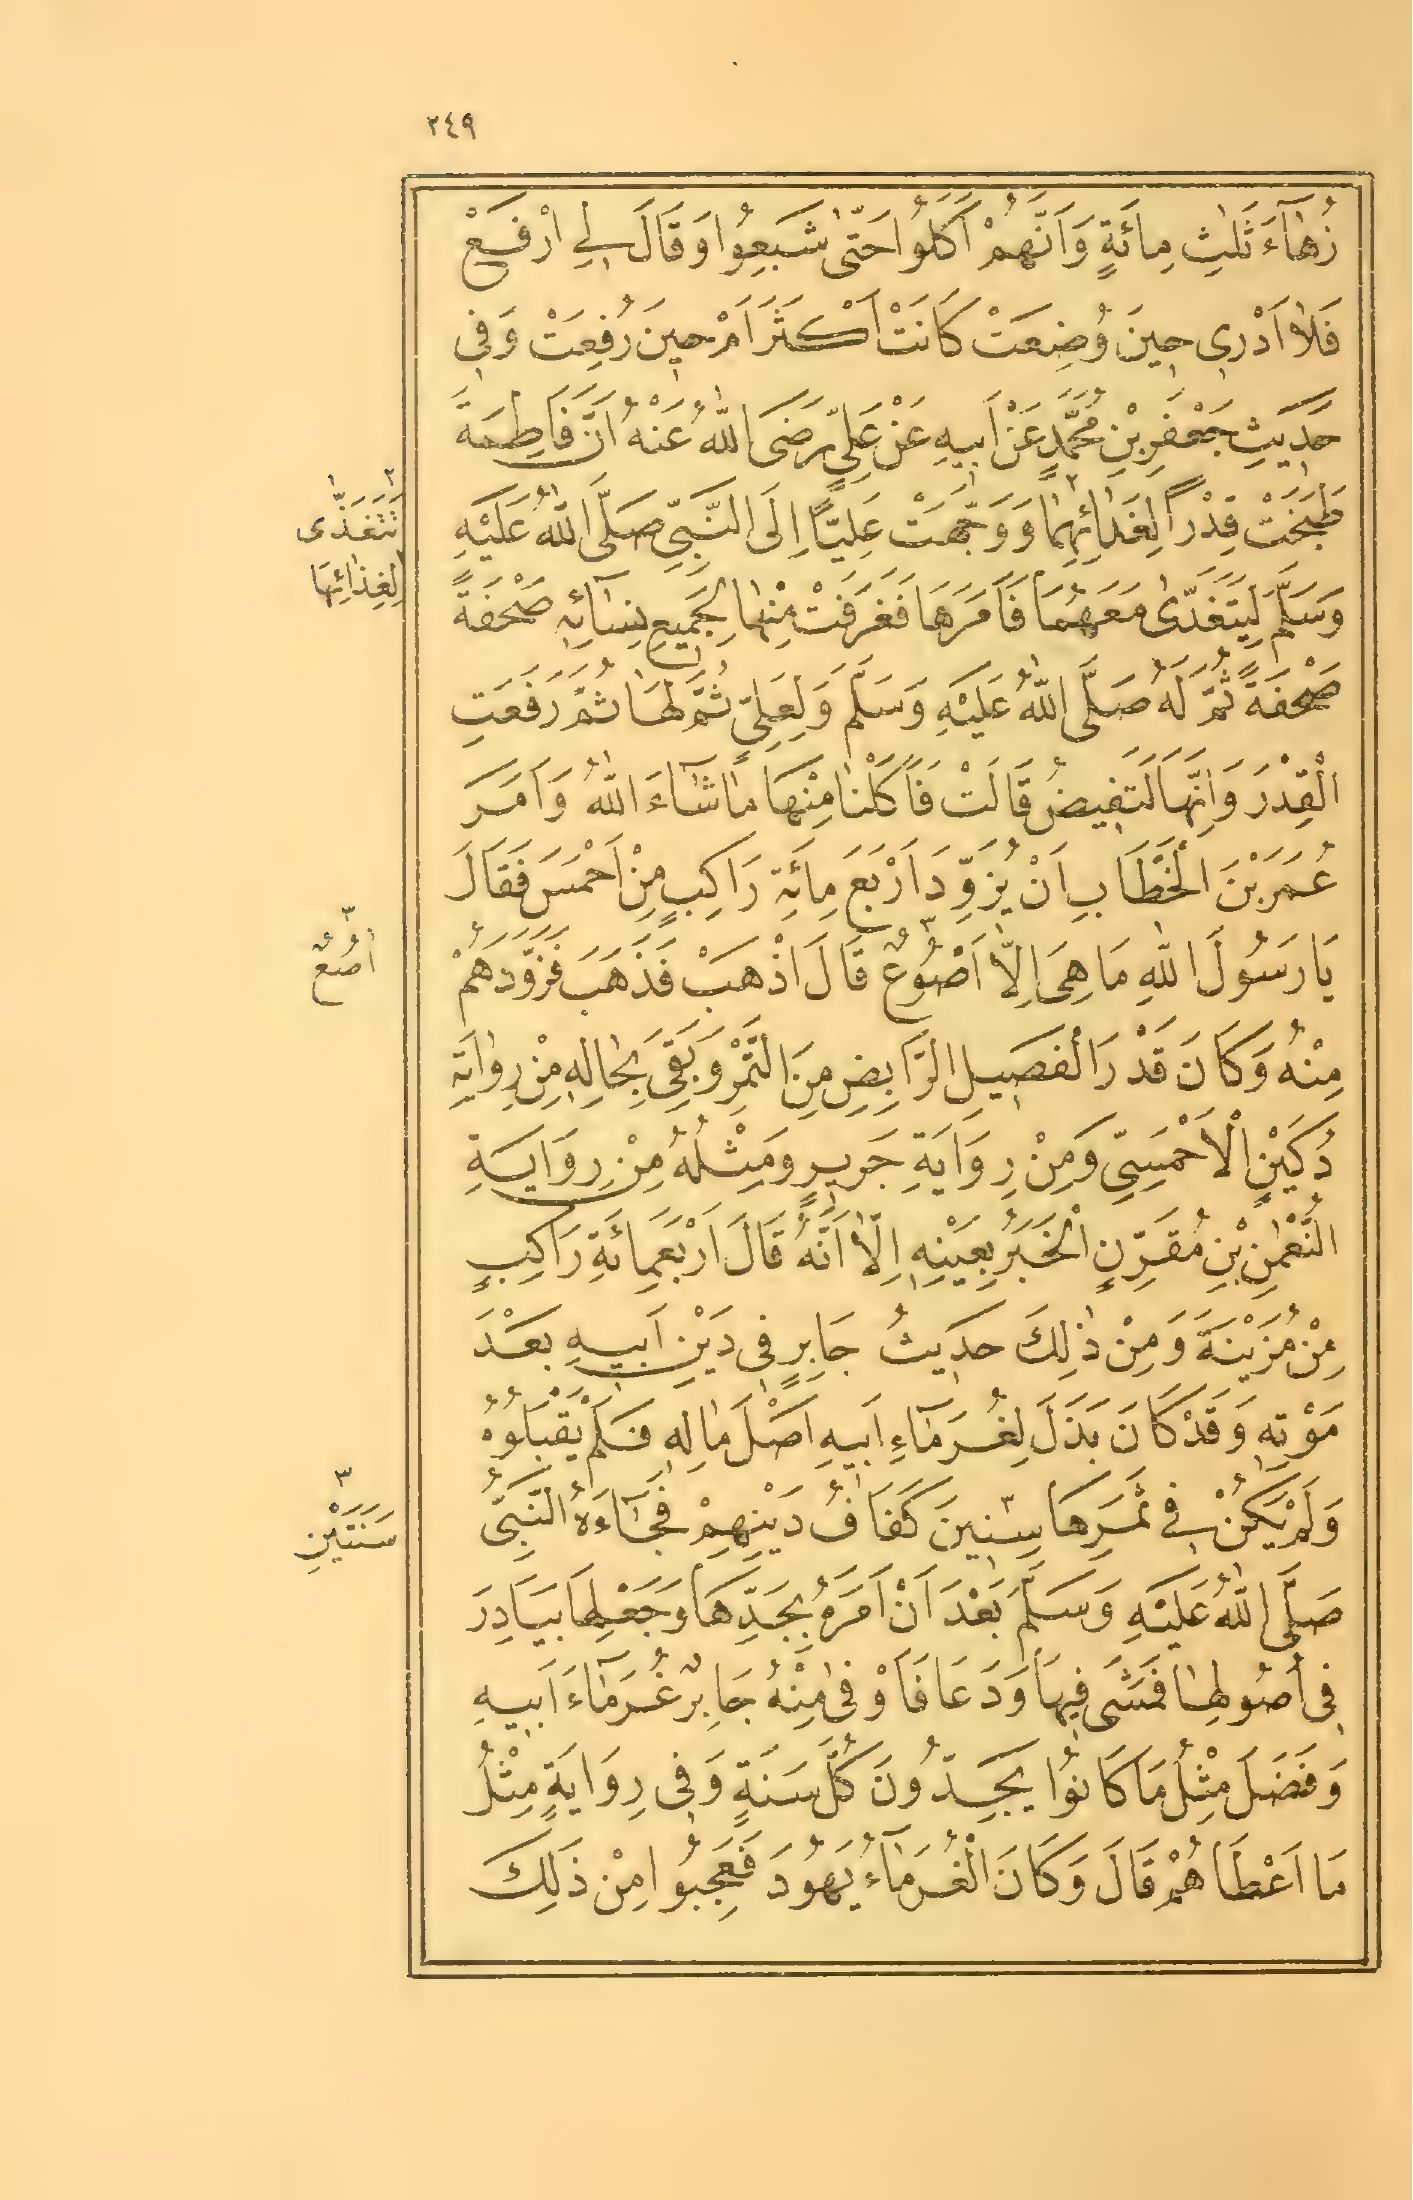 ٢٤٩
زُهَآءَ ثَلٰثِ مِائَةٍ وَاَنَّهُمْ اَكَلُوُا حَتّٰى شَبَعِوُا وَقَالَ لِي ارْفَعْ
فَلاٰ اَدْرِى حِينَ وُضِعَتْ كَانَتْ اَكْثَرَ اَمْ حِينَ رُفِعَتْ وَفِى
حَدِيثِ جَعْفَرِ بْنِ مُحَمَّدٍ عَنْ اَبِيهِ عَنْ عَلِىٍّ رَضَىَ اللّٰهُ عَنْهُ اَنَّ فَاطِمَةَ
طَبَخَتْ قِدْراً لِغَدَائِهِمٰا وَوَجَّهَتْ عَلِيّاً اِلَى النَّبِىِّ صَلَّى اللّٰهُ عَلَيْهِ
وَسَلَّمَ لِيَتَغَدّٰى مَعَهُمَا فَاَمَرَهَا فَغَرَفَتْ مِنْهٰا لِجَمِيعِ نِسَآئِهِ صَحْفَةً
صَحْفَةً ثُمَّ لَهُ صَلَّى اللّٰهُ عَلَيْهِ وَسَلَّمَ وَلِعَلِىٍّ ثُمَّ لَهَا ثُمَّ رَفَعَتِ
الْقِدْرَ وَاِنَّهَا لَتَفِيضُ قَالَتْ فَاَكَلْنٰا مِنْهَا مٰا شَآءَ اللّٰهُ وَاَمَرَ
عُمَرَ بْنَ الْخَطَّابِ اَنْ يُزَوِّدَ اَرْبَعَ مِائَةِ رَاكِبٍ مِنْ اَحْمَسَ فَقَالَ
يَا رَسُولَ اللّٰهِ مَا هِىَ اِلاّٰ اَصْوُعٌ قَالَ اذْهَبْ فَذَهَبَ فَزَوَّدَهُمْ
مِنْهُ وَكَانَ قَدْرَ الْفَصِيلِ الرَّابِضِ مِنَ التَّمْرِ وَبَقِىَ بِحٰالِهِ مِنْ رِوٰايَةِ
دُكَيْنٍ الْاَحْمَسِىِّ وَمِنْ رِوَايَةِ جَرِيرٍ وَمِثْلُهُ مِنْ رِوَايَةِ
النُّعْمٰنِ بْنِ مُقَرِّنٍ الْخَبَرُ بِعَيْنِهِ اِلّاٰ اَنَّهُ قَالَ اَرْبَعَمِائَةِ رَاكِبٍ
مِنْ مُزَيْنَةَ وَمِنْ ذٰلِكَ حَدِيثُ جَابِرٍ فِى دَيْنِ اَبِيهِ بَعْدَ
مَوْتِهِ وَقَدْ كَانَ بَذَلَ لِغُرَمٰآءِ اَبِيهِ اَصْلَ مٰالِهِ فَلَمْ يَقْبَلُوُهُ
وَلَمْ يَكُنْ فِى ثَمَرِهَا سِنِينَ كَفَافُ دَيْنِهِمْ فَجَآءَهُ النَّبِىُّ
صَلَّى اللّٰهُ عَلَيْهِ وَسَلَّمَ بَعْدَ اَنْ اَمَرَهُ بِجَدِّهَا وَجَعْلِهَا بَيَادِرَ
فِى اُصُولِهٰا فَمَشَى فِيهَا وَدَعَا فَاَوْفىٰ مِنْهُ جَابِرٌ غُرَمٰآءَ اَبِيهِ
وَفَضَلَ مِثْلُ مَا كَانوُا يَجَدُّونَ كُلَّ سَنَةٍ وَفِى رِوَايَةٍ مِثْلُ
مَا اَعْطَاهُمْ قَالَ وَكَانَ الْغُرَمٰآءُ يَهُودَ فَعَجِبُوا مِنْ ذَلِكَ
٢
تَتَغَذّٰى
لِغِذٰائِهَا
٣
اَصُعٌ
٣
سَنَتَيْنِ